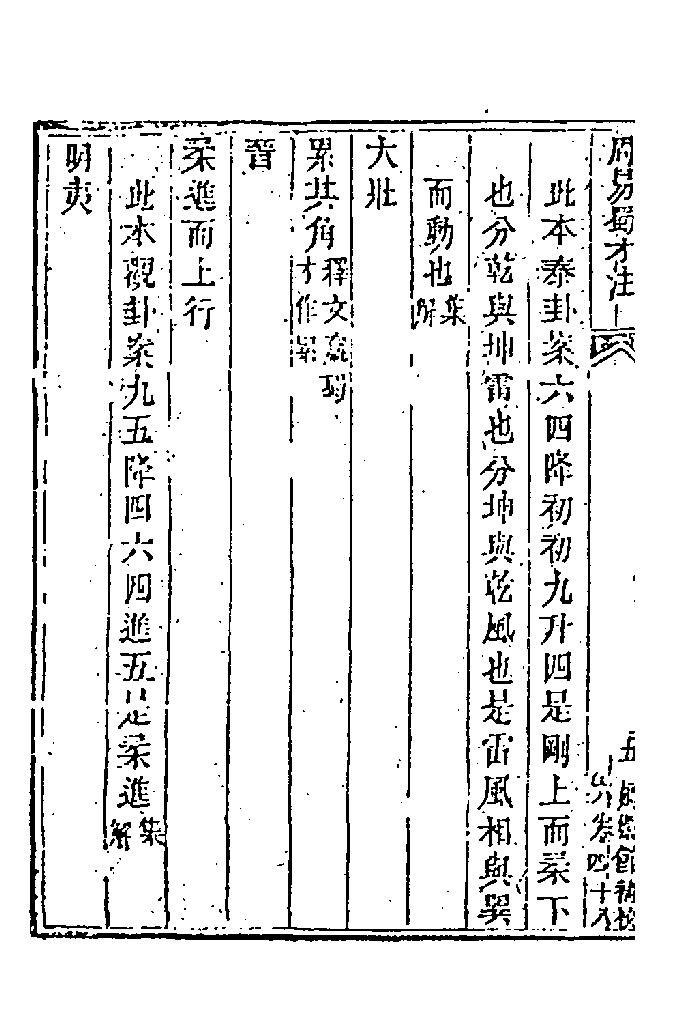 周易蜀才注
此本泰卦案六四降初初九升四是剛上而柔下
也分乾與坤雷也分坤與乾風也是雷風相與巽
而動也集解
大壯
累其角釋文羸蜀才作累
晉
柔進而上行
此本觀卦案九五降四六四進五是柔進集解
明夷
五
卷四十八